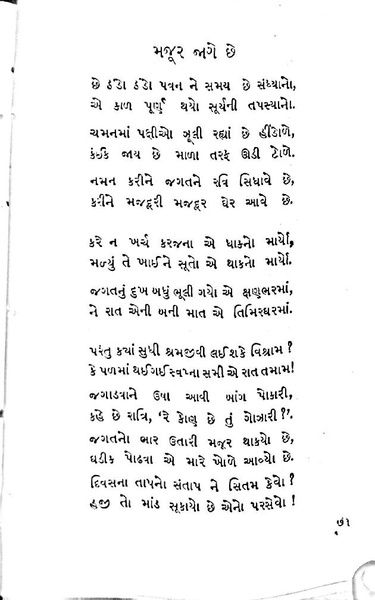 મજૂર જાગે છે
છે ઠંડો ઠંડો પવન ને સમય છે સંધ્યાનો,
એ કાળ પૂર્ણ થયો સૂર્યની તપસ્યાનો.
ચમનમાં પક્ષીઓ ઝૂલી રહ્યાં છે હીંડોળે,
કંઈક જાય છે માળા તરફ ઊડી ટોળે.
નમન કરીને જગતને રવિ સિધાવે છે,
કરીને મજદૂરી મજદૂર ઘેર આવે છે.
કરે ન ખર્ચ કરજના એ ધાકનો માર્યો,
મળ્યું તે ખાઈને સૂતો એ થાકનો માર્યો.
જગતનું દુખ બધું ભૂલી ગયો એ ક્ષણભરમાં,
ને રાત એની બની માત એ તિમિરઘરમાં.
પરંતુ કયાં સુધી શ્રમજીવી લઈ શકે વિશ્રામ?
કે પળમાં થઈ ગઈ સ્વપ્ના સમી એ રાત તમામ!
જગાડવાને ઉષા આવી બાંગ પોકારી,
કહે છે રાત્રિ, 'રે કોણ છે તું ગોઝારી?'.
જગતનો ભાર ઉતારી મજૂર થાકયો છે,
ઘડીક પોઢવા એ મારે ખોળે આવ્યો છે.
દિવસના તાપનો સંતાપ ને સિતમ કેવો?
હજી તો માંડ સૂકાયો છે એનો પરસેવો!
૭૧